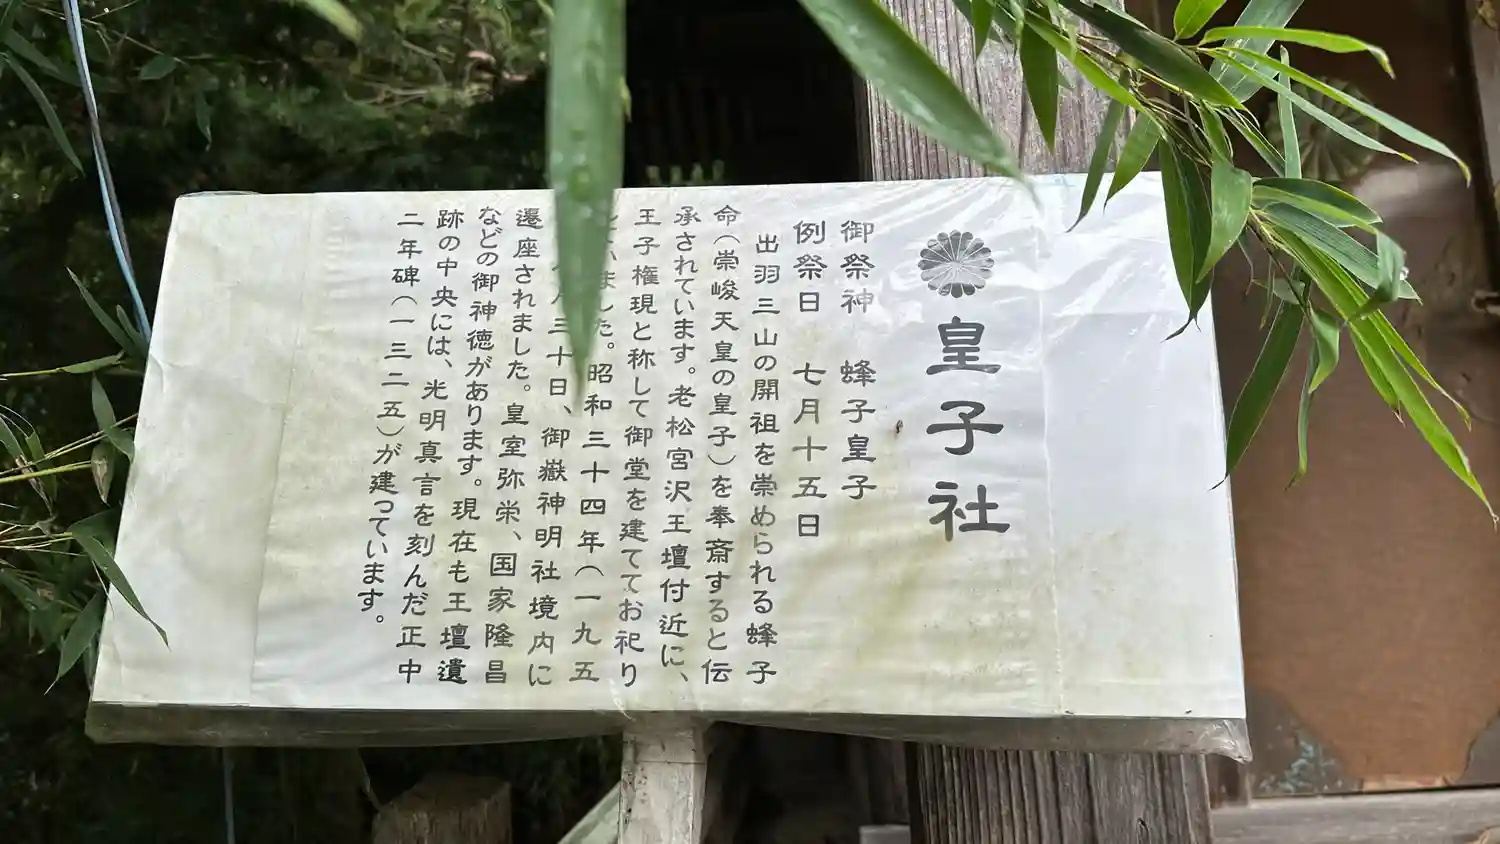 皇子社
御祭神　蜂子皇子
例祭日　七月十五日
出羽三山の開祖を崇められる蜂子
命（崇峻天皇の皇子）を奉斎すると伝
承されています。老松宮沢王壇付近に、
王子権現と称して御堂を建ててお祀り
いました。昭和三十四年（一九五
月三十日、御嶽神明社境内に
遷座されました。皇室弥栄、国家隆昌
などの御神徳があります。現在も王壇遺
跡の中央には、光明真言を刻んだ正中
二年碑（一三二五）が建っています。